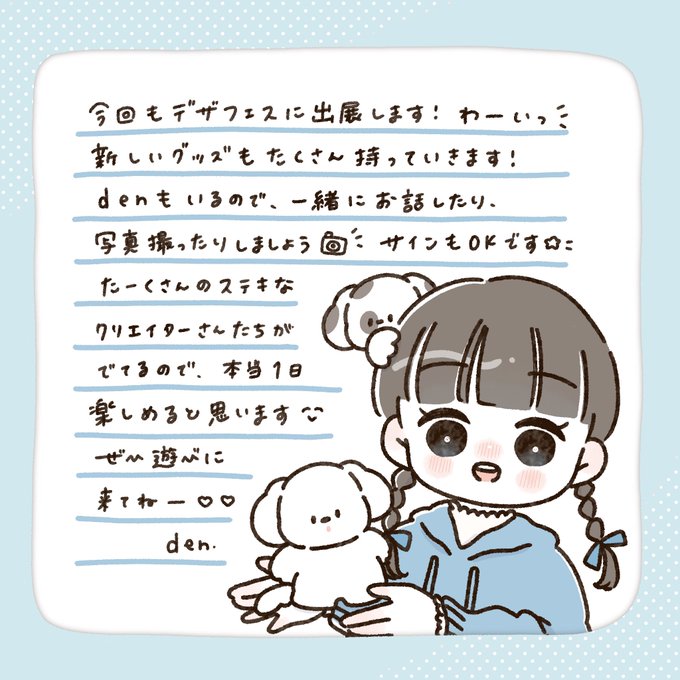 今回もデザフェスに出展します! わーいっ
新しいグッズもたくさん持っていきます!
denもいるので、一緒にお話したり、
写真撮ったりしましょう サインもOKです☆
たーくさんのステキな
クリエイターさんたちが
でてるので、本当1日
楽しめると思います
ぜひ遊びに
来てねー♡♡
den.